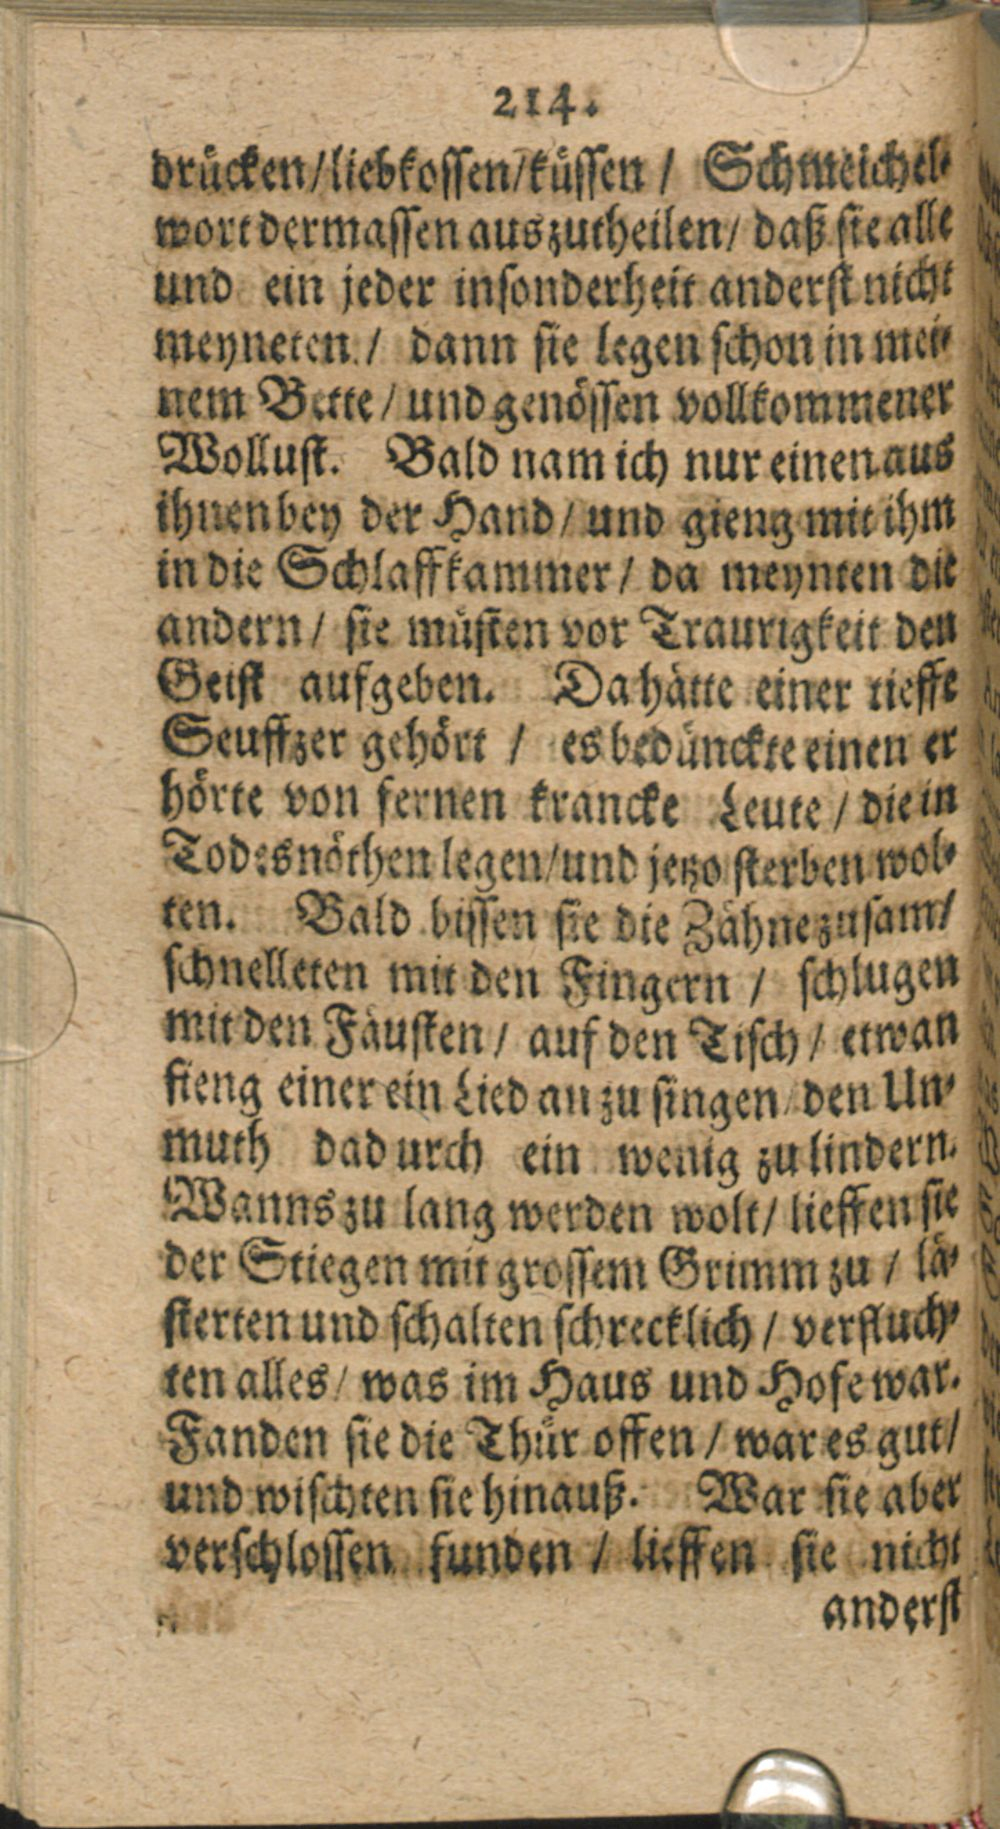 214.
drücken/liebkossen/küssen / Schmeichel-
wort dermassen auszutheilen/ daß sie alle
und ein jeder insonderheit anderst nicht
meyneten / dann sie legen schon in mei-
nem Bette / und genössen vollkommener
Wollust. Bald nam ich nur einen aus
ihnen bey der Hand / und gieng mit ihm
in die Schlaffkammer / da meynten die
andern / sie müsten vor Traurigkeit den
Geist aufgeben. Da hätte einer tieffe
Seuffzer gehört / es bedünckte einen er
hörte von fernen krancke Leute / die in
Todesnöthen legen/und jetzo sterben wol-
ten. Bald bissen sie die Zähne zusam/
schnelleten mit den Fingern / schlugen
mit den Fäusten / auf den Tisch / etwan
fieng einer ein Lied an zu singen/ den Un-
muth dadurch ein wenig zu lindern.
Wanns zu lang werden wolt/ lieffen sie
der Stiegen mit grossem Grimm zu / lä-
sterten und schalten schrecklich / verfluch-
ten alles/ was im Haus und Hofe war.
Fanden sie die Thür offen / war es gut/
und wischten sie hinauß. War sie aber
verschlossen funden / lieffen sie nicht
anderst